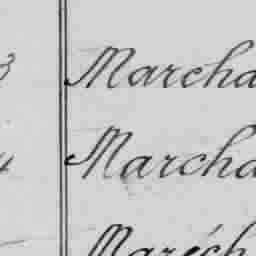 3 Marcha
4 Marcha
Maréch